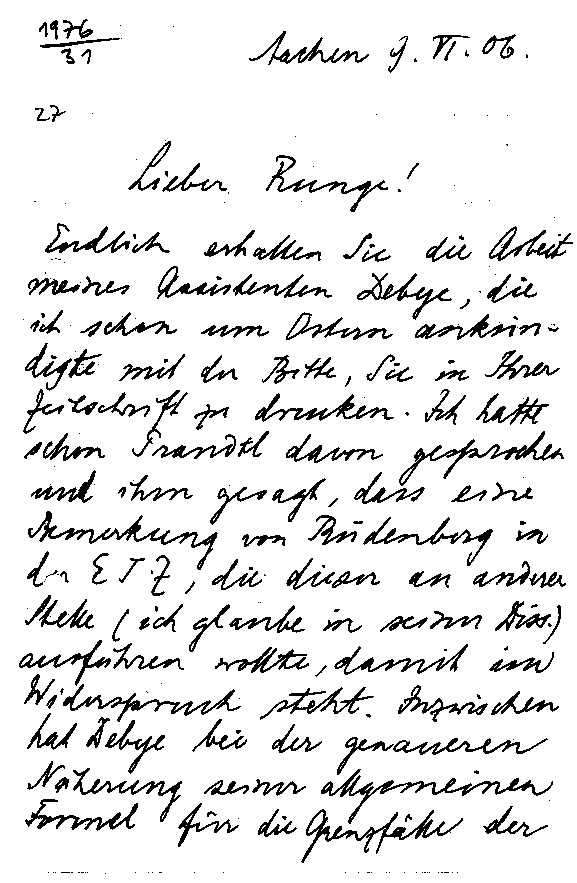 1976
31
Aachen 9. VI. 06.
27
Lieber Runge!
Endlich erhalten Sie die Arbeit
meines Assistenten Debye, die
ich schon um Ostern ankün-
digte mit der Bitte, Sie in Ihrer
Zeitschrift zu drucken. Ich hatte
schon Prandtl davon gesprochen
und ihm gesagt, dass eine
Bemerkung von Rüdenberg in
der ETZ, die dieser an anderer
Stelle (ich glaube in seiner Diss.)
ausführen wollte, damit im
Widerspruch steht. Inzwischen
hat Debye bei der genaueren
Näherung seiner allgemeinen
Formel für die Grenzfälle der